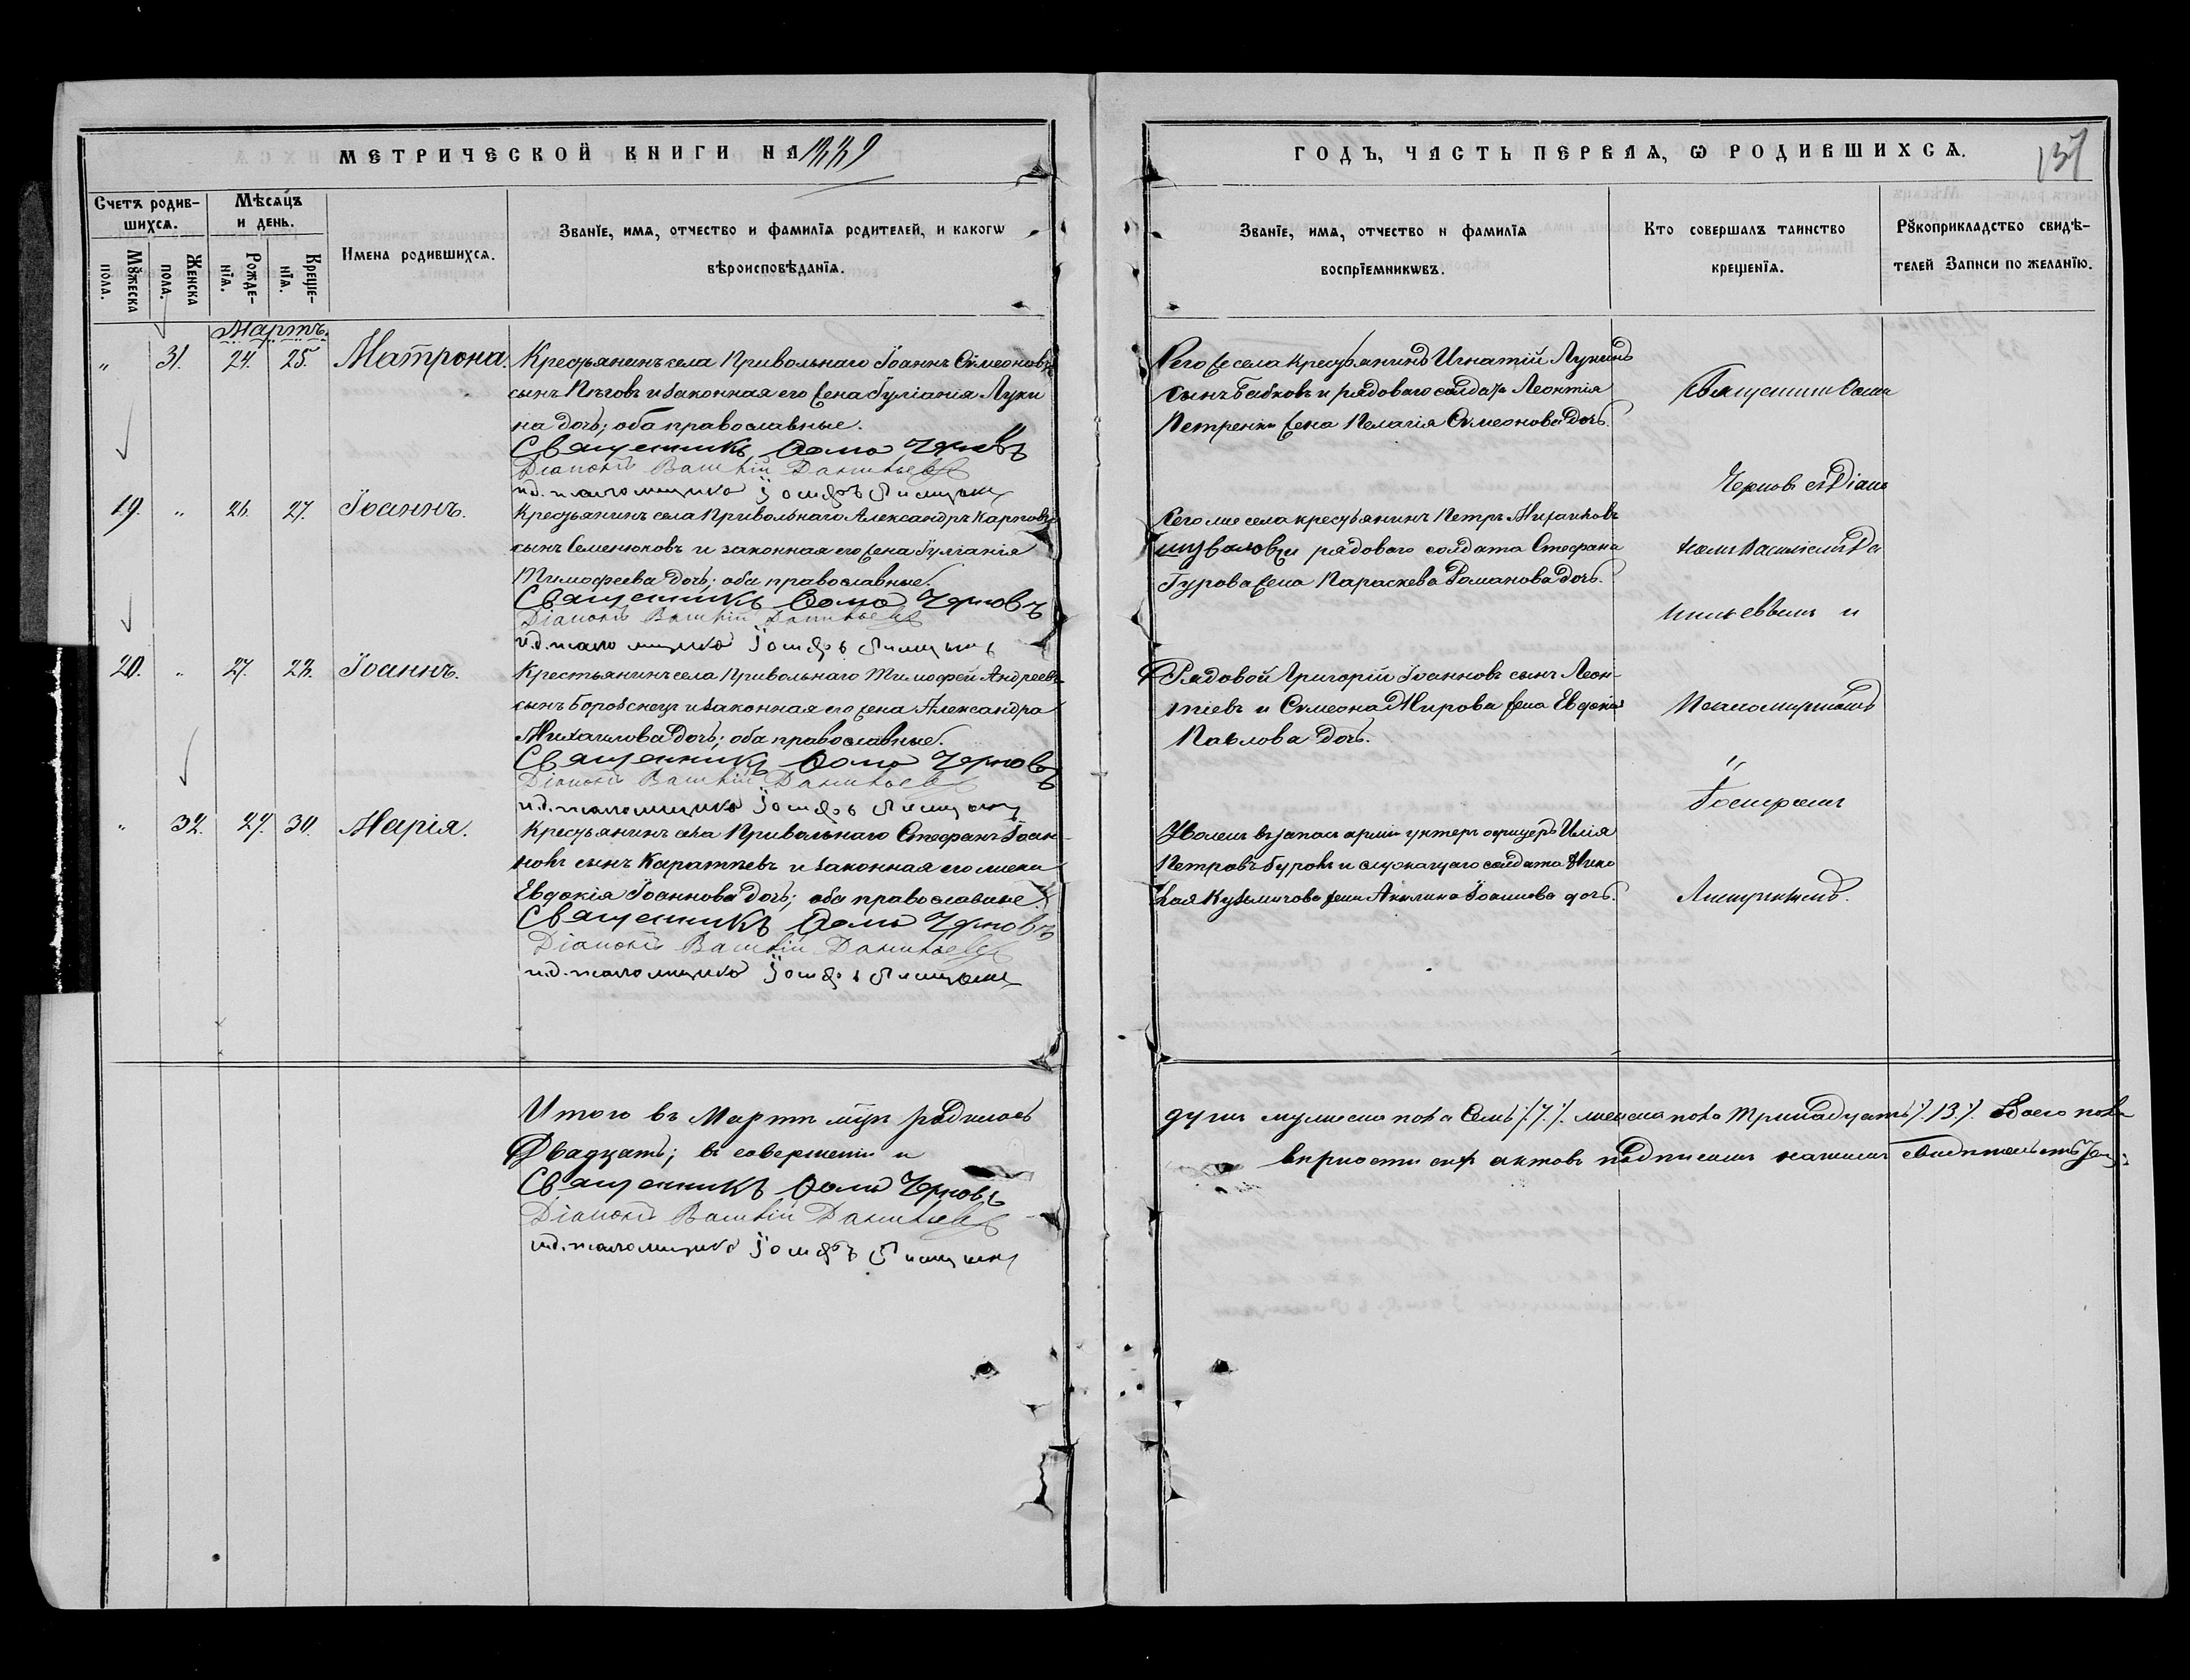 МЕТРИЧЕСКОЙ КНИГИ НА 1889
ГОДЪ, ЧАСТЬ ПЕРВАЯ, Ѡ РОДИВШИХСѦ.
137
Счетъ родив-
шихсѧ.
Мѣсѧцъ
и день.
Мꙋжеска
пола.
Женска
пола.
Рожде-
нїѧ.
Креще-
нїѧ.
Имена родившихсѧ.
Званїе, имѧ, отчество и фамилїѧ родителей, и какогѡ
вѣроисповѣданїѧ.
Званїе, имѧ, отчество и фамилїѧ
воспрїемникѡвъ.
Кто совершалъ таинство
крещенїѧ.
Рꙋкоприкладство свидѣ-
телей записи по желанїю.
Мартъ.
" 31. 24. 25. Матрона. Крестьянинъ села Привольнаго Іоаннъ Сѵмеоновъ
сынъ и законная его жена Іуліанія Луки
на дочь; оба православные.
Священникъ Ѳома Черновъ
Діаконъ Василій Данильевъ
и.д. псаломщика Іосифъ
Сего же села крестьянинъ Игнатій Лукинъ
сынъ Бабковъ и рядоваго солдата Леонтія
Петренки жена Пелагія Сѵмеонова дочь.
Священник Ѳома
Чернов съ Діако
19. " 26. 27. Іоаннъ. Крестьянинъ села Привольнаго Александръ Карповъ
сынъ Семенюковъ и законная его жена Іуліанія
Тимофеева дочь; оба православные.
Священникъ Ѳома Черновъ
Діаконъ Василій Данильевъ
и.д. псаломщика Іосифъ
Сего же села крестьянинъ Петръ Михаиловъ
и рядоваго солдата Стефана
Гурова жена Параскева Романова дочь.
номъ Василіемъ Да
нильевымъ и
20. " 27. 28. Іоаннъ. Крестьянинъ села Привольнаго Тимофей Андреевъ
сынъ и законная его жена Александра
Михаилова дочь; оба православные.
Священникъ Ѳома Черновъ
Діаконъ Василій Данильевъ
и.д. псаломщика Іосифъ
Рядовой Григорій Іоанновъ сынъ Леон-
тіевъ и Сѵмеона Жирова жена Евдокія
Павлова дочь.
Псаломщикомъ
"
Іосифомъ
" 32. 27. 30. Марія. Крестьянинъ села Привольнаго Стефанъ Іоан-
новъ сынъ и законная его жена
Евдокія Іоаннова дочь; оба православные.
Священникъ Ѳома Черновъ
Діаконъ Василій Данильевъ
и.д. псаломщика Іосифъ
Уволен въ запасъ арміи унтеръ офицеръ Илія
Петровъ Буровъ и служащаго солдата Нико
лая Кузьмичова жена Акилина Іоаннова дочь.
Итого въ Мартѣ мцѣ родилось
Двадцать; въ совершеніи и
Священникъ Ѳома Черновъ
Діаконъ Василій Данильевъ
и.д. псаломщика Іосифъ
душъ мужеска пола Семь /.7./. женска пола Тринадцать /.13./. обоего пола
вѣрности сихъ актовъ подписомъ нашимъ